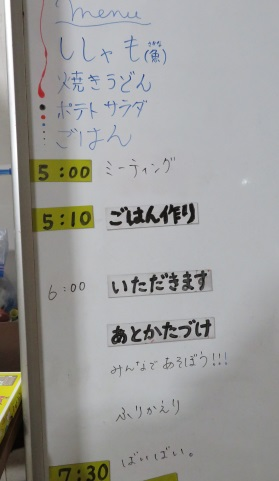 menu
ししゃも(魚)
焼きうどん
ポテトサラダ
ごはん
5:00 ミーティング
5:10 ごはん作り
6:00 いただきます
あとかたづけ
みんなであそぼう!!!
ふりかえり
7:30 ばいばい。